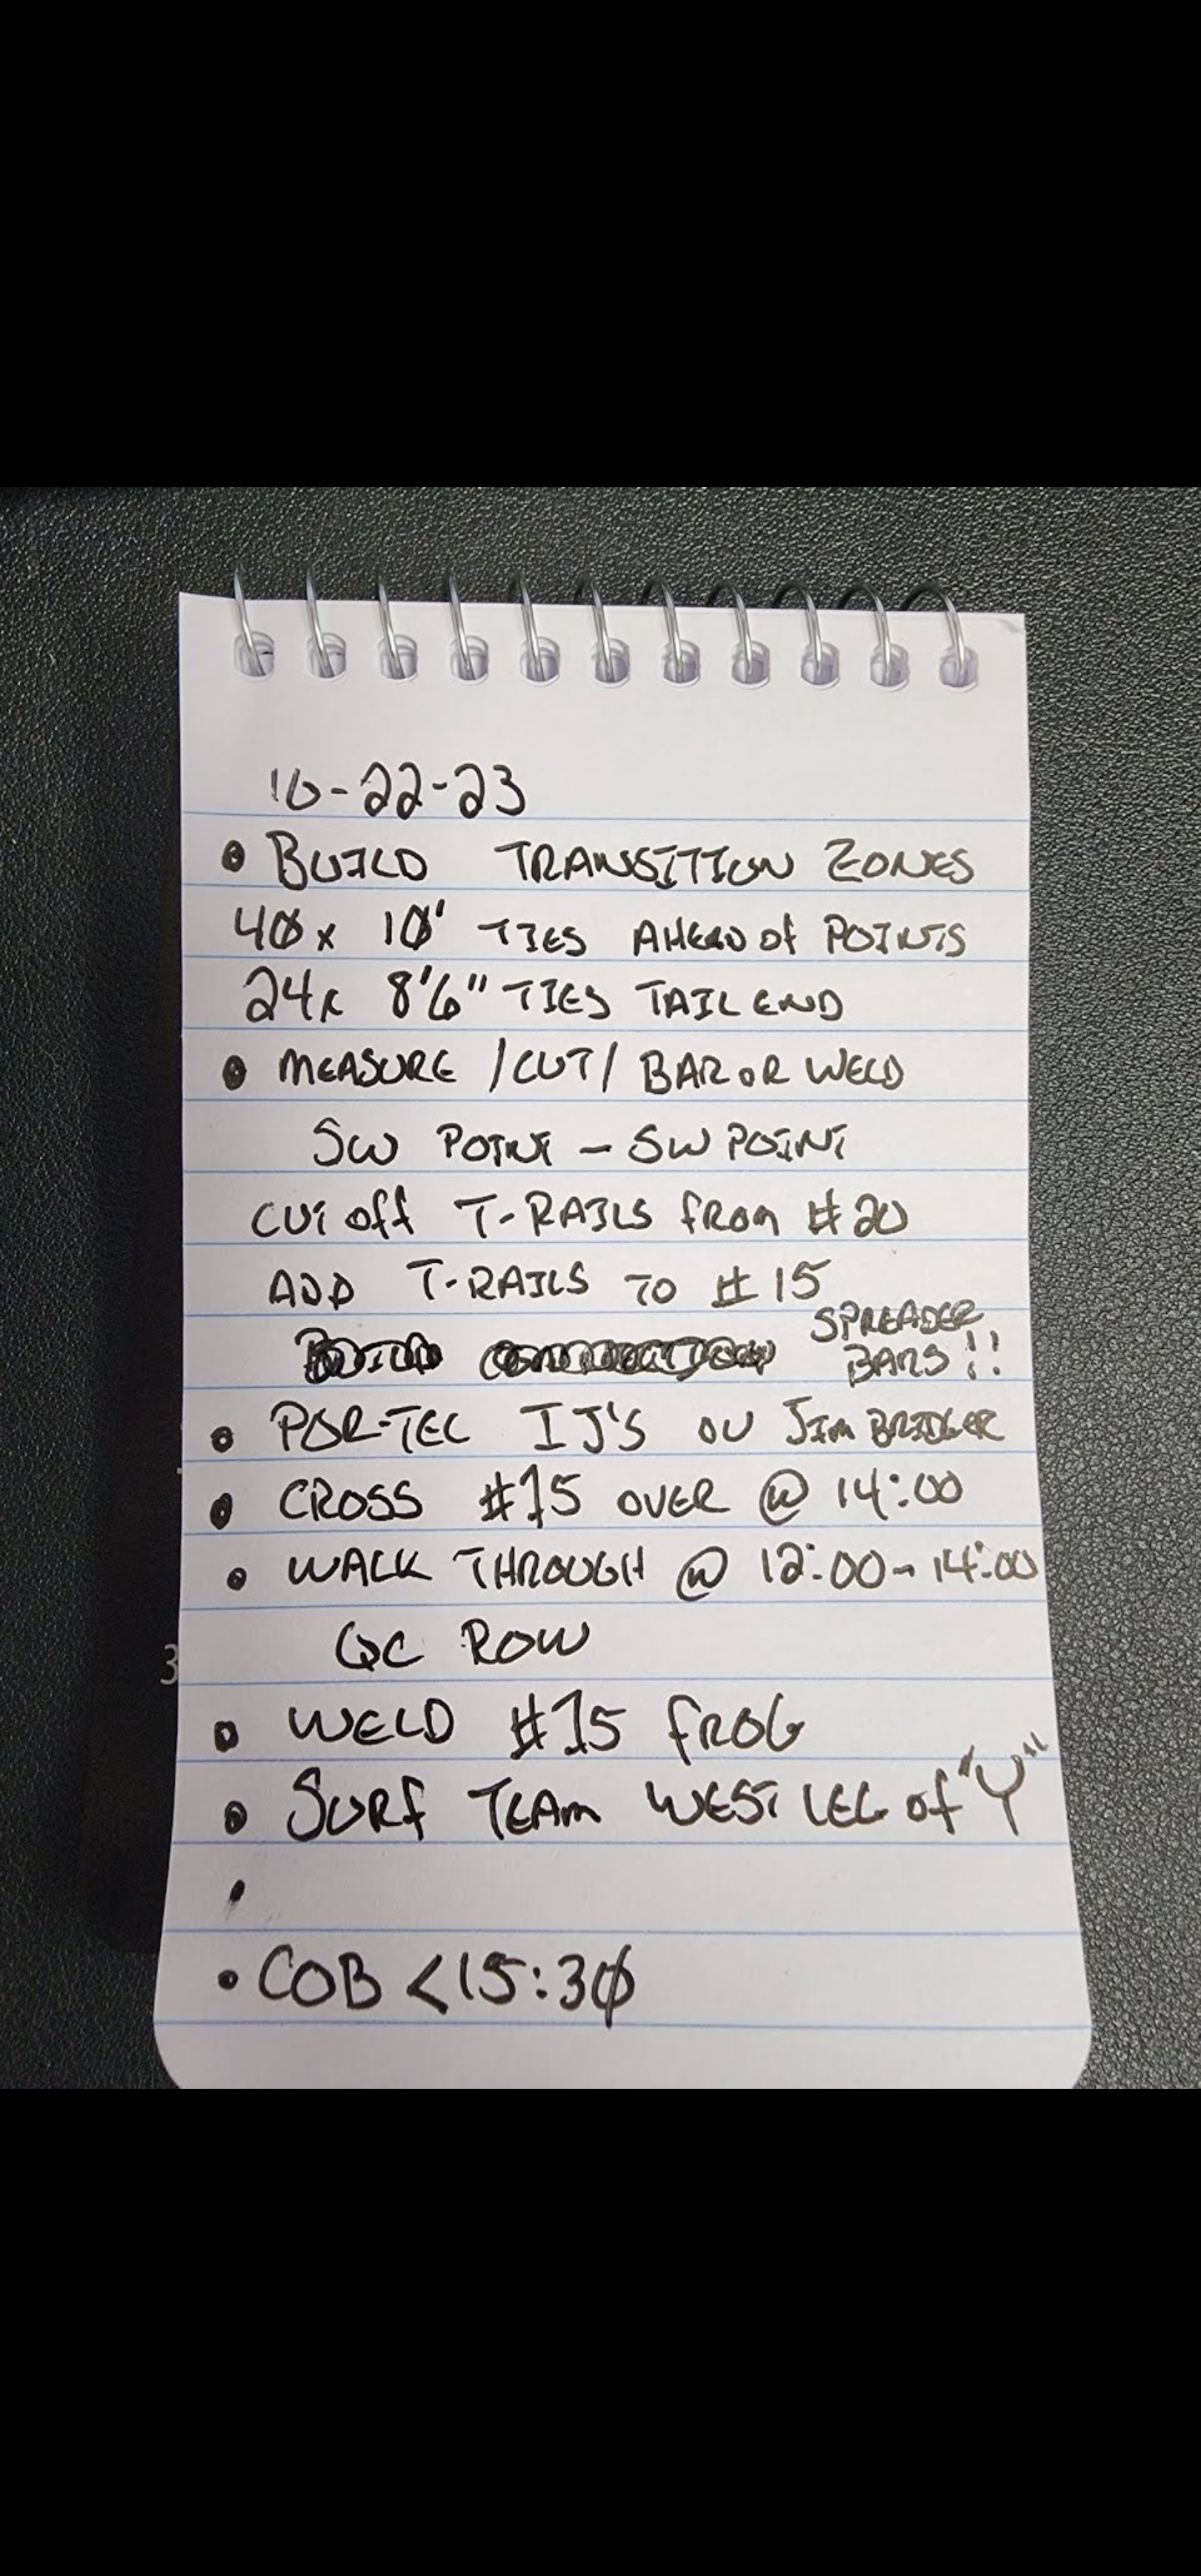 10-22-23
• BUILD TRANSITION ZONES
40x 10' TIES AHEAD of POINTS
24x 8'6" TIES TAIL END
• MEASURE /CUT/ BAR OR WELD
SW POINT - SW POINT
CUT off T-RAILS from #20
ADD T-RAILS TO #15
SPREADER
BARS!!
• POR-TEC IJ'S ON JIM BRIDGER
• CROSS #15 OVER @ 14:00
• WALK THROUGH @ 12:00-14:00
QC ROW
• WELD #15 FROG
• SURf TEAM WEST LEG of "Y"
•
• COB <15:30
3